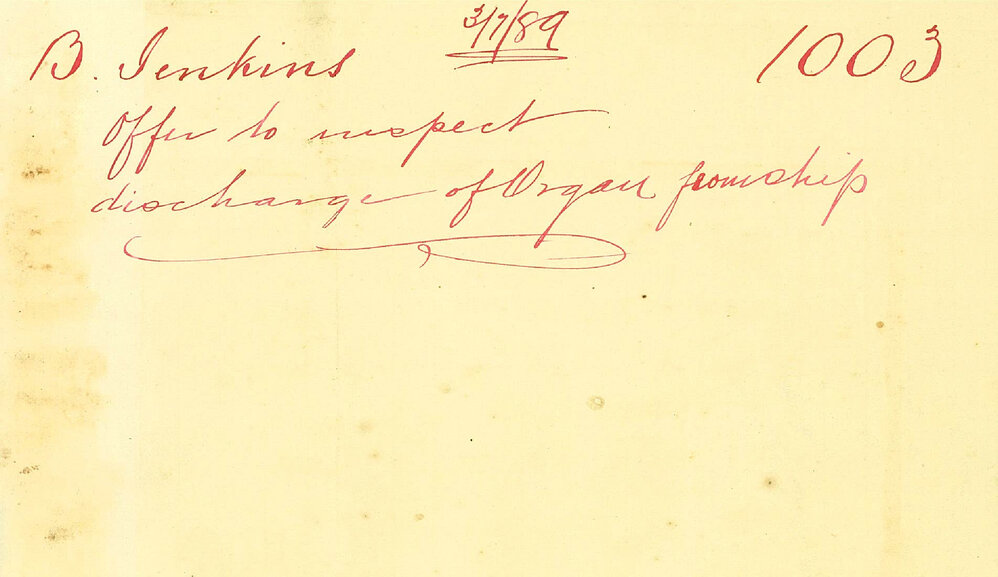 3/7/89
B. Jenkins 1003
Offer to inspect
discharge of Organ from ship